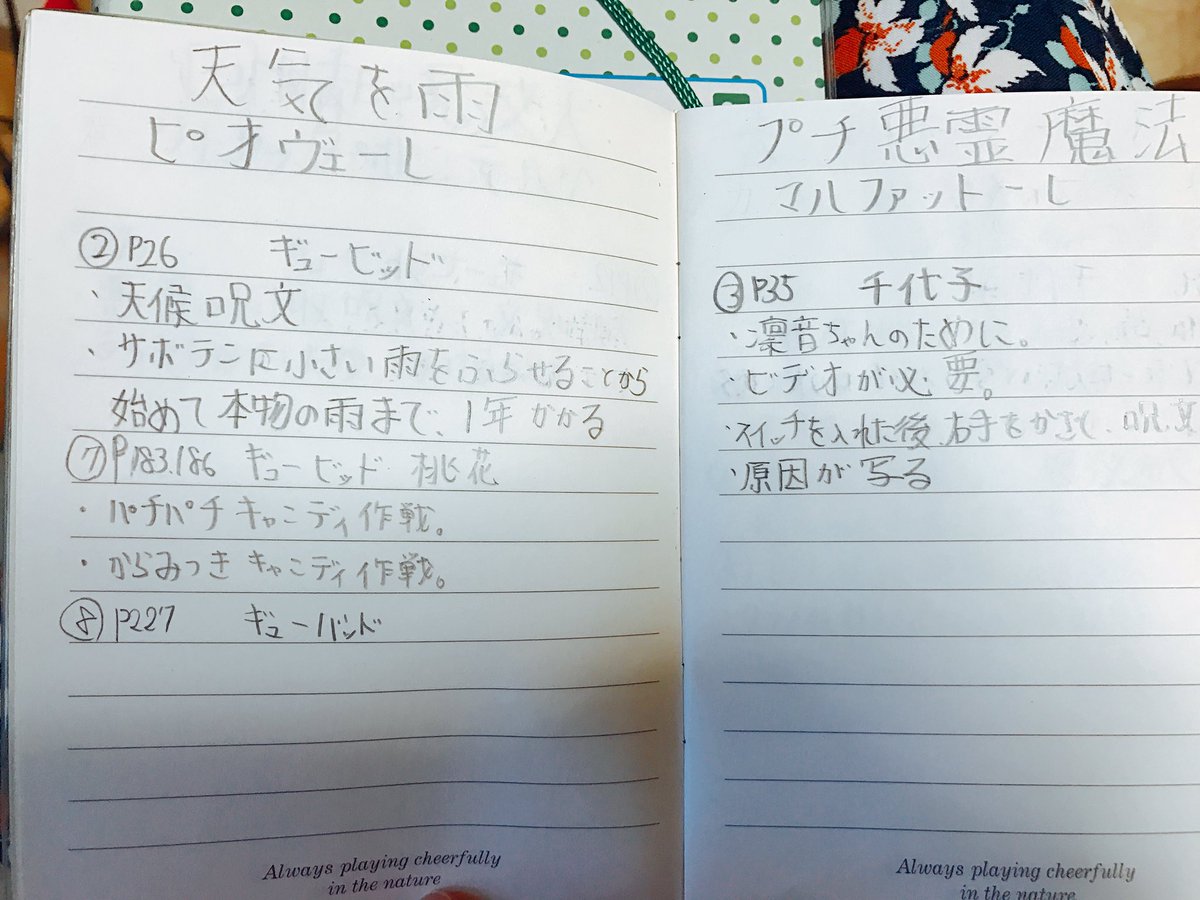 天気を雨
ピオヴェーレ
②P26 ギュービッド
・天候呪文
・サボテンに小さい雨をふらせることから
始めて本物の雨まで、1年かかる
⑦P183.186 ギュービッド 桃花
・パチパチキャンディ作戦。
・からみつきキャンディ作戦。
⑧P227 ギュービッド
Always playing cheerfully
in the nature
プチ悪霊魔法
マルファットーレ
③P35 千代子
・凛音ちゃんのために。
・ビデオが必要。
・スイッチを入れた後、右手をかざして、呪文
・原因が写る
Always playing cheerfully
in the nature